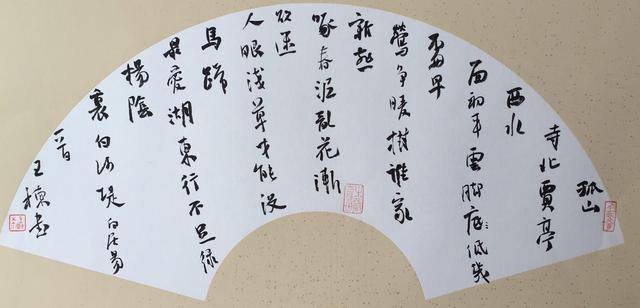 孤山
寺北賈亭
西水
面初平雲脚底低幾
處早
鶯爭暖樹誰家
新燕
啄春泥亂花漸
欲迷
人眼淺草才能沒
馬蹄
最愛湖東行不足綠
楊陰
裏白沙堤白居易
一首
王書